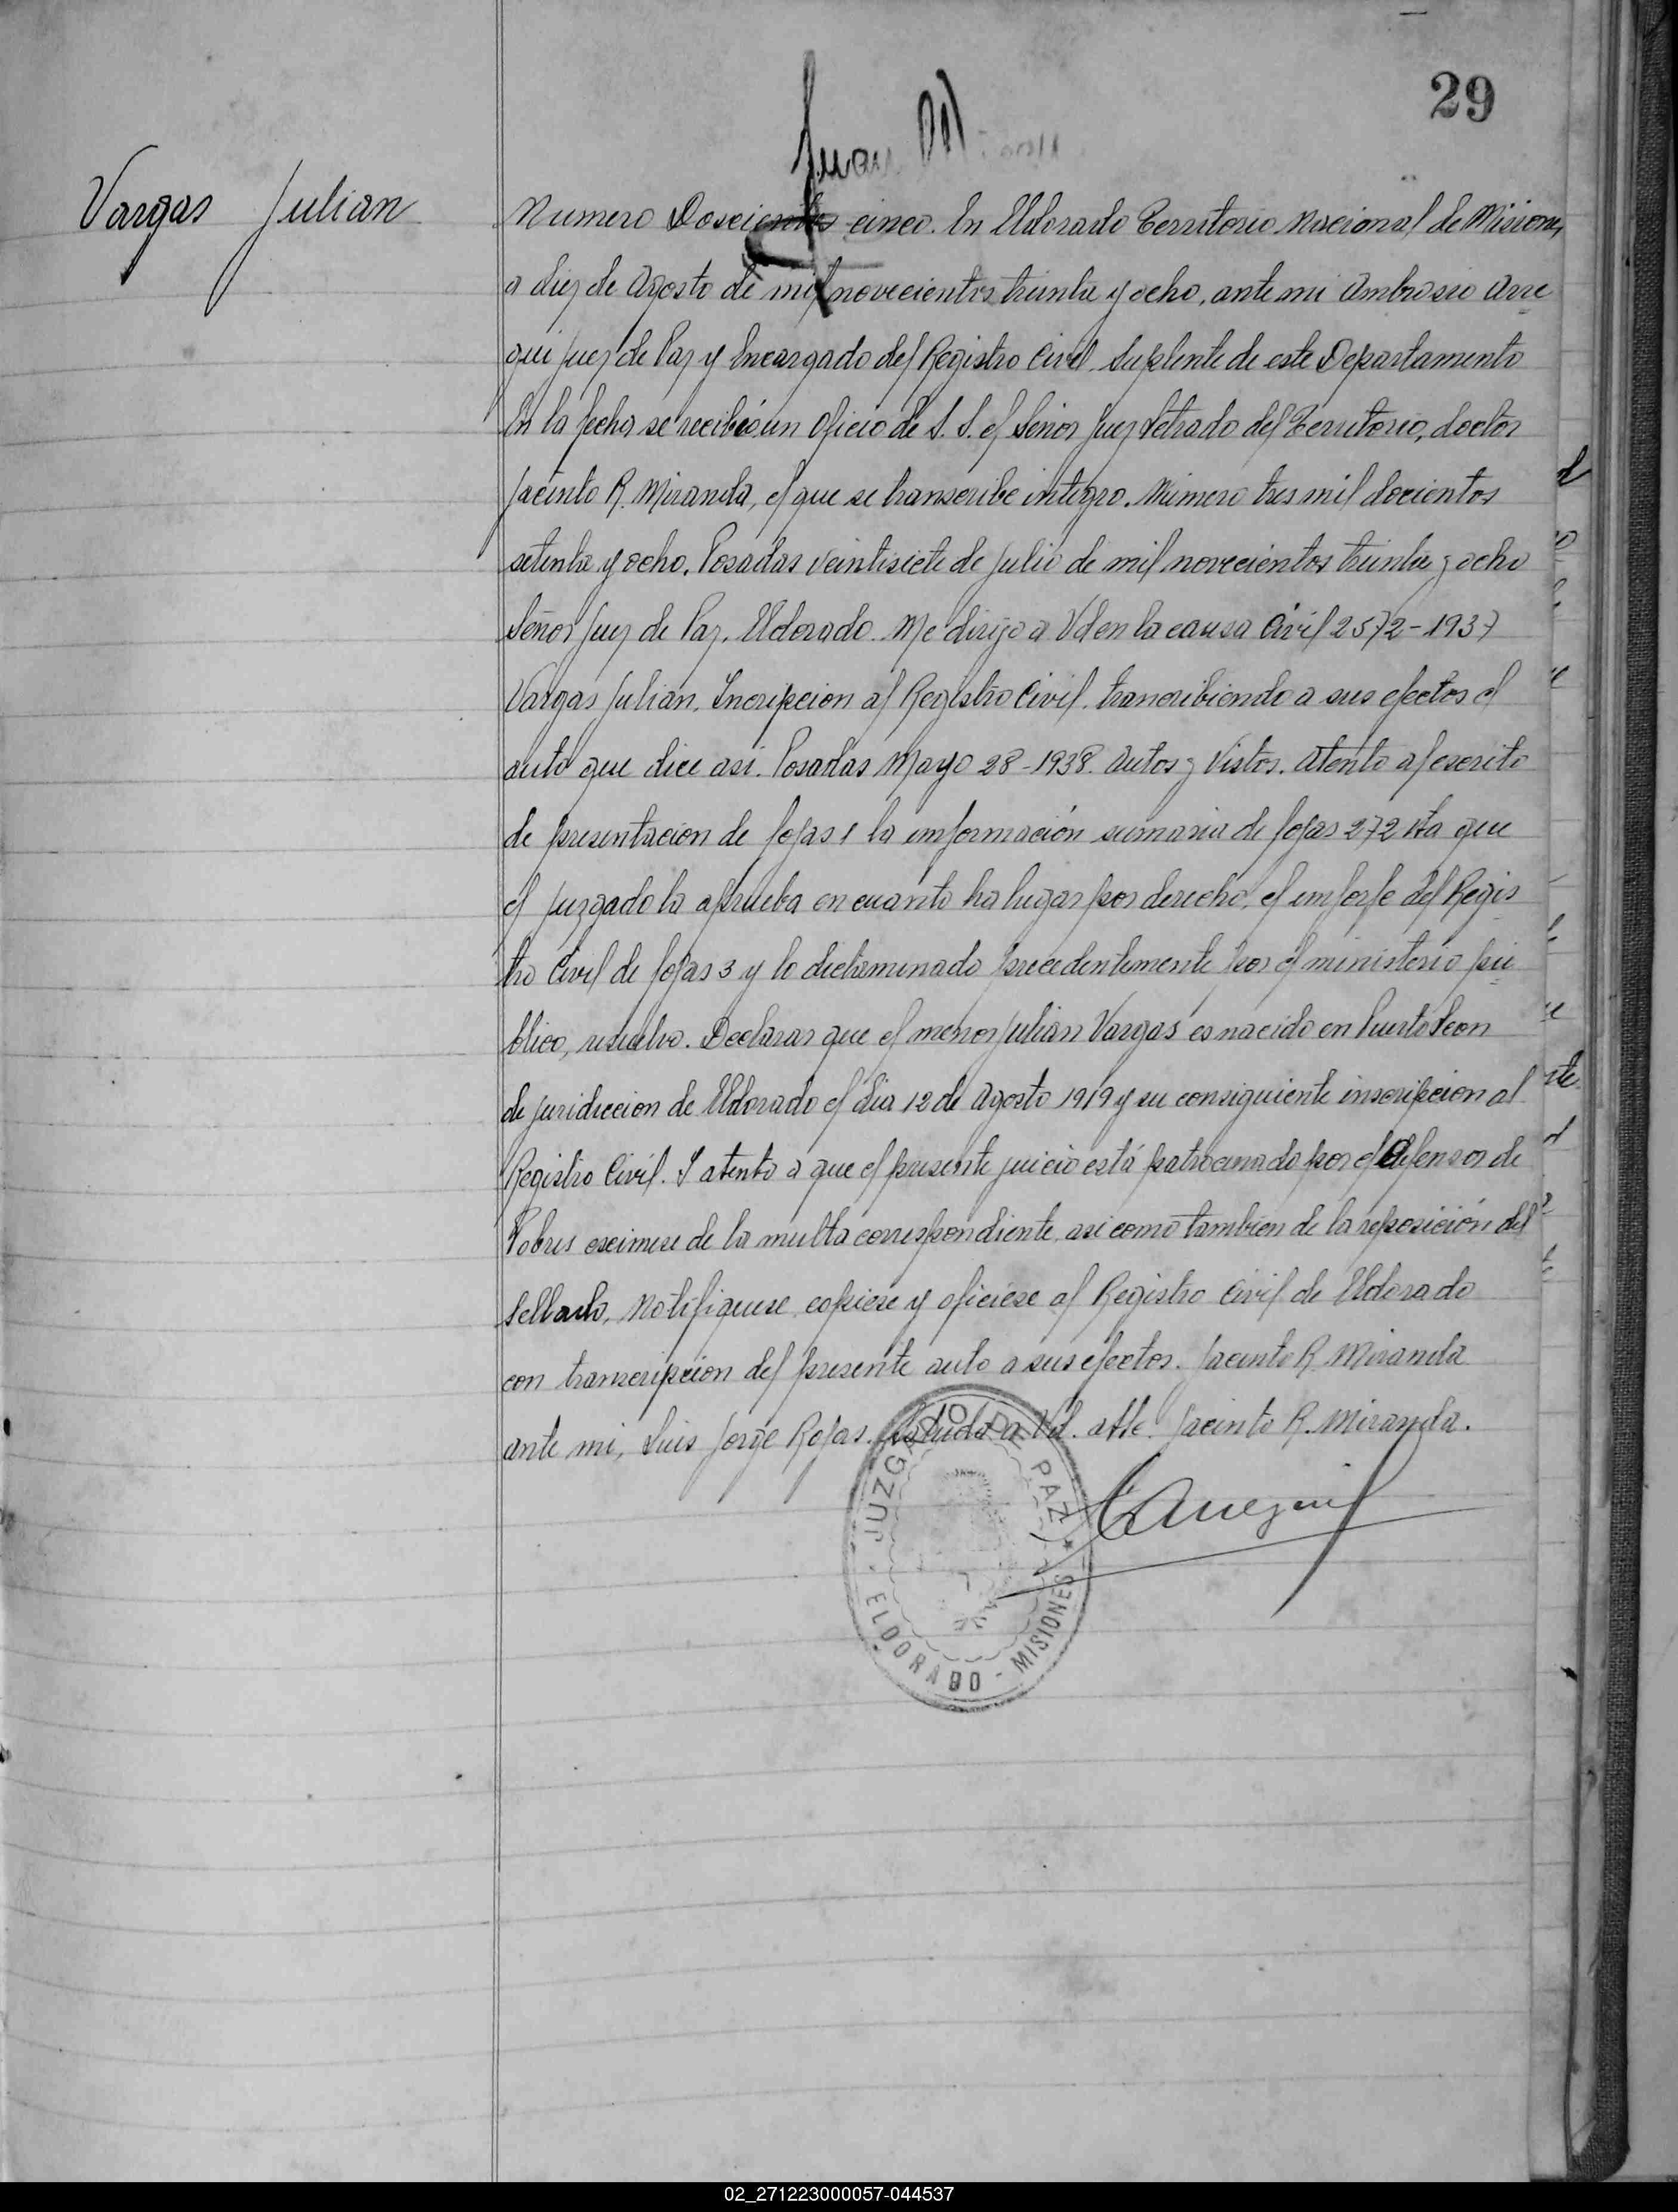 29
Juan M
Vargas Julian
Numero Doscientos cinco. En Eldorado Territorio Nacional de Misiones,
a diez de Agosto de mil novecientos treinta y ocho, ante mi Ambrosio Arre
gui juez de Paz y Encargado del Registro Civil Suplente de este Departamento
En la fecha se recibió un oficio de S. S. el Señor Juez Letrado del Territorio, doctor
Jacinto R. Miranda, el que se transcribe integro. Numero tres mil docientos
setenta y ocho. Posadas veintisiete de Julio de mil novecientos treinta y ocho
Señor Juez de Paz. Eldorado. Me dirijo a Vd en la causa Civil 2572-1937
Vargas Julian. Incripcion al Registro Civil. trancribiendo a sus efectos el
auto que dice asi. Posadas Mayo 28-1938. Autos y Vistos. Atento al escrito
de presentacion de fojas 1 la imformación sumaria de fojas 272 vta que
el juzgado la aprueba en cuanto ha lugar por derecho, el imforfe del Regis
tro Civil de fojas 3 y lo dictaminado precedentemente por el ministerio pú
blico, resuelvo. Declarar que el menor Julian Vargas es nacido en Puerto Leon
de juridiccion de Eldorado el dia 12 de Agosto 1919 y su consiguiente inscripcion al
Registro Civil. I atento a que el presente juicio está patrocinado por el Defensor de
Pobres eximese de la multa correspondiente, asi como tambien de la reposición del
Sellado. Notifiquese copiese y oficiese al Registro Civil de Eldorado
con transcripcion del presente auto a sus efectos. Jacinto R Miranda
ante mi, Luis Jorge Rojas. Saluda a Vd. atte. Jacinto R. Miranda.
JUZGADO DE PAZ
ELDORADO - MISIONES
02_271223000057-044537